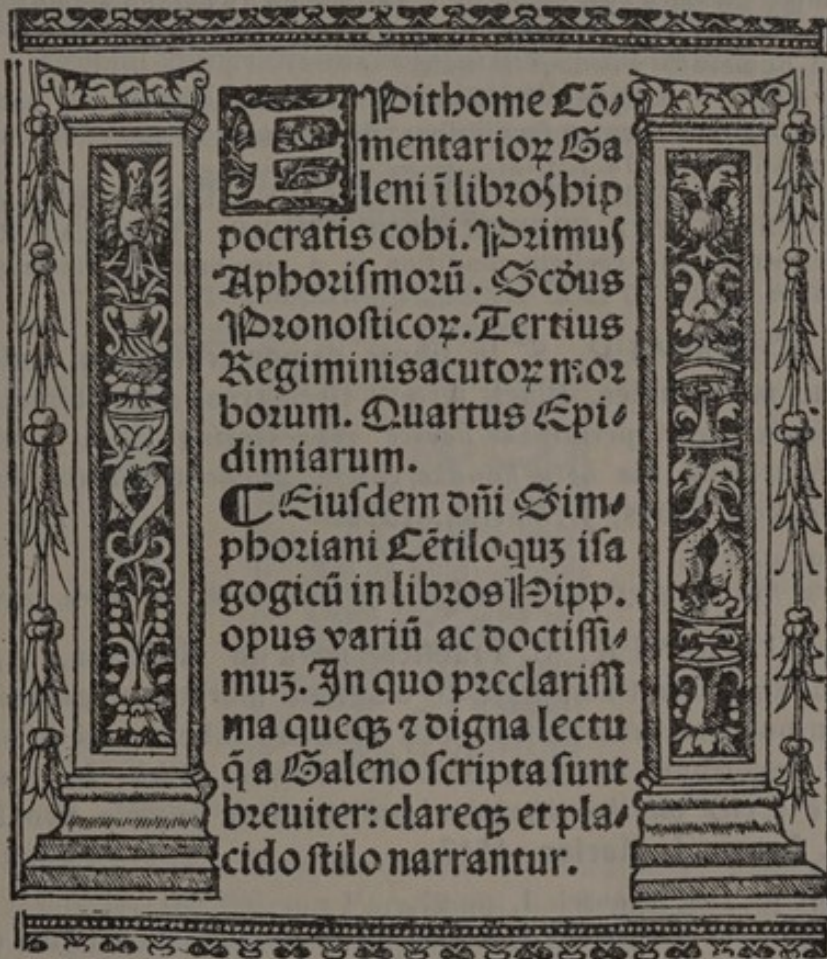 EPithome Cō⸗
mentarioꝝ Ga
leni ī libroſ hip
pocratis cobi. Primuſ
Aphoriſmorū. Scd̄us
Pronoſticoꝝ. Tertius
Regiminis acutoꝝ mor
borum. Quartus Epi⸗
dimiarum.
⸿ Eiuſdem dn̄i Sim⸗
phoriani Cētiloquꝫ iſa
gogicū in libros Hipp.
opus variū ac doctiſſi⸗
muꝫ. In quo preclariſſi
ma queqꝫ ⁊ digna lectu
q̄ a Galeno ſcripta ſunt
breuiter: clareqꝫ et pla⸗
cido ſtilo narrantur.